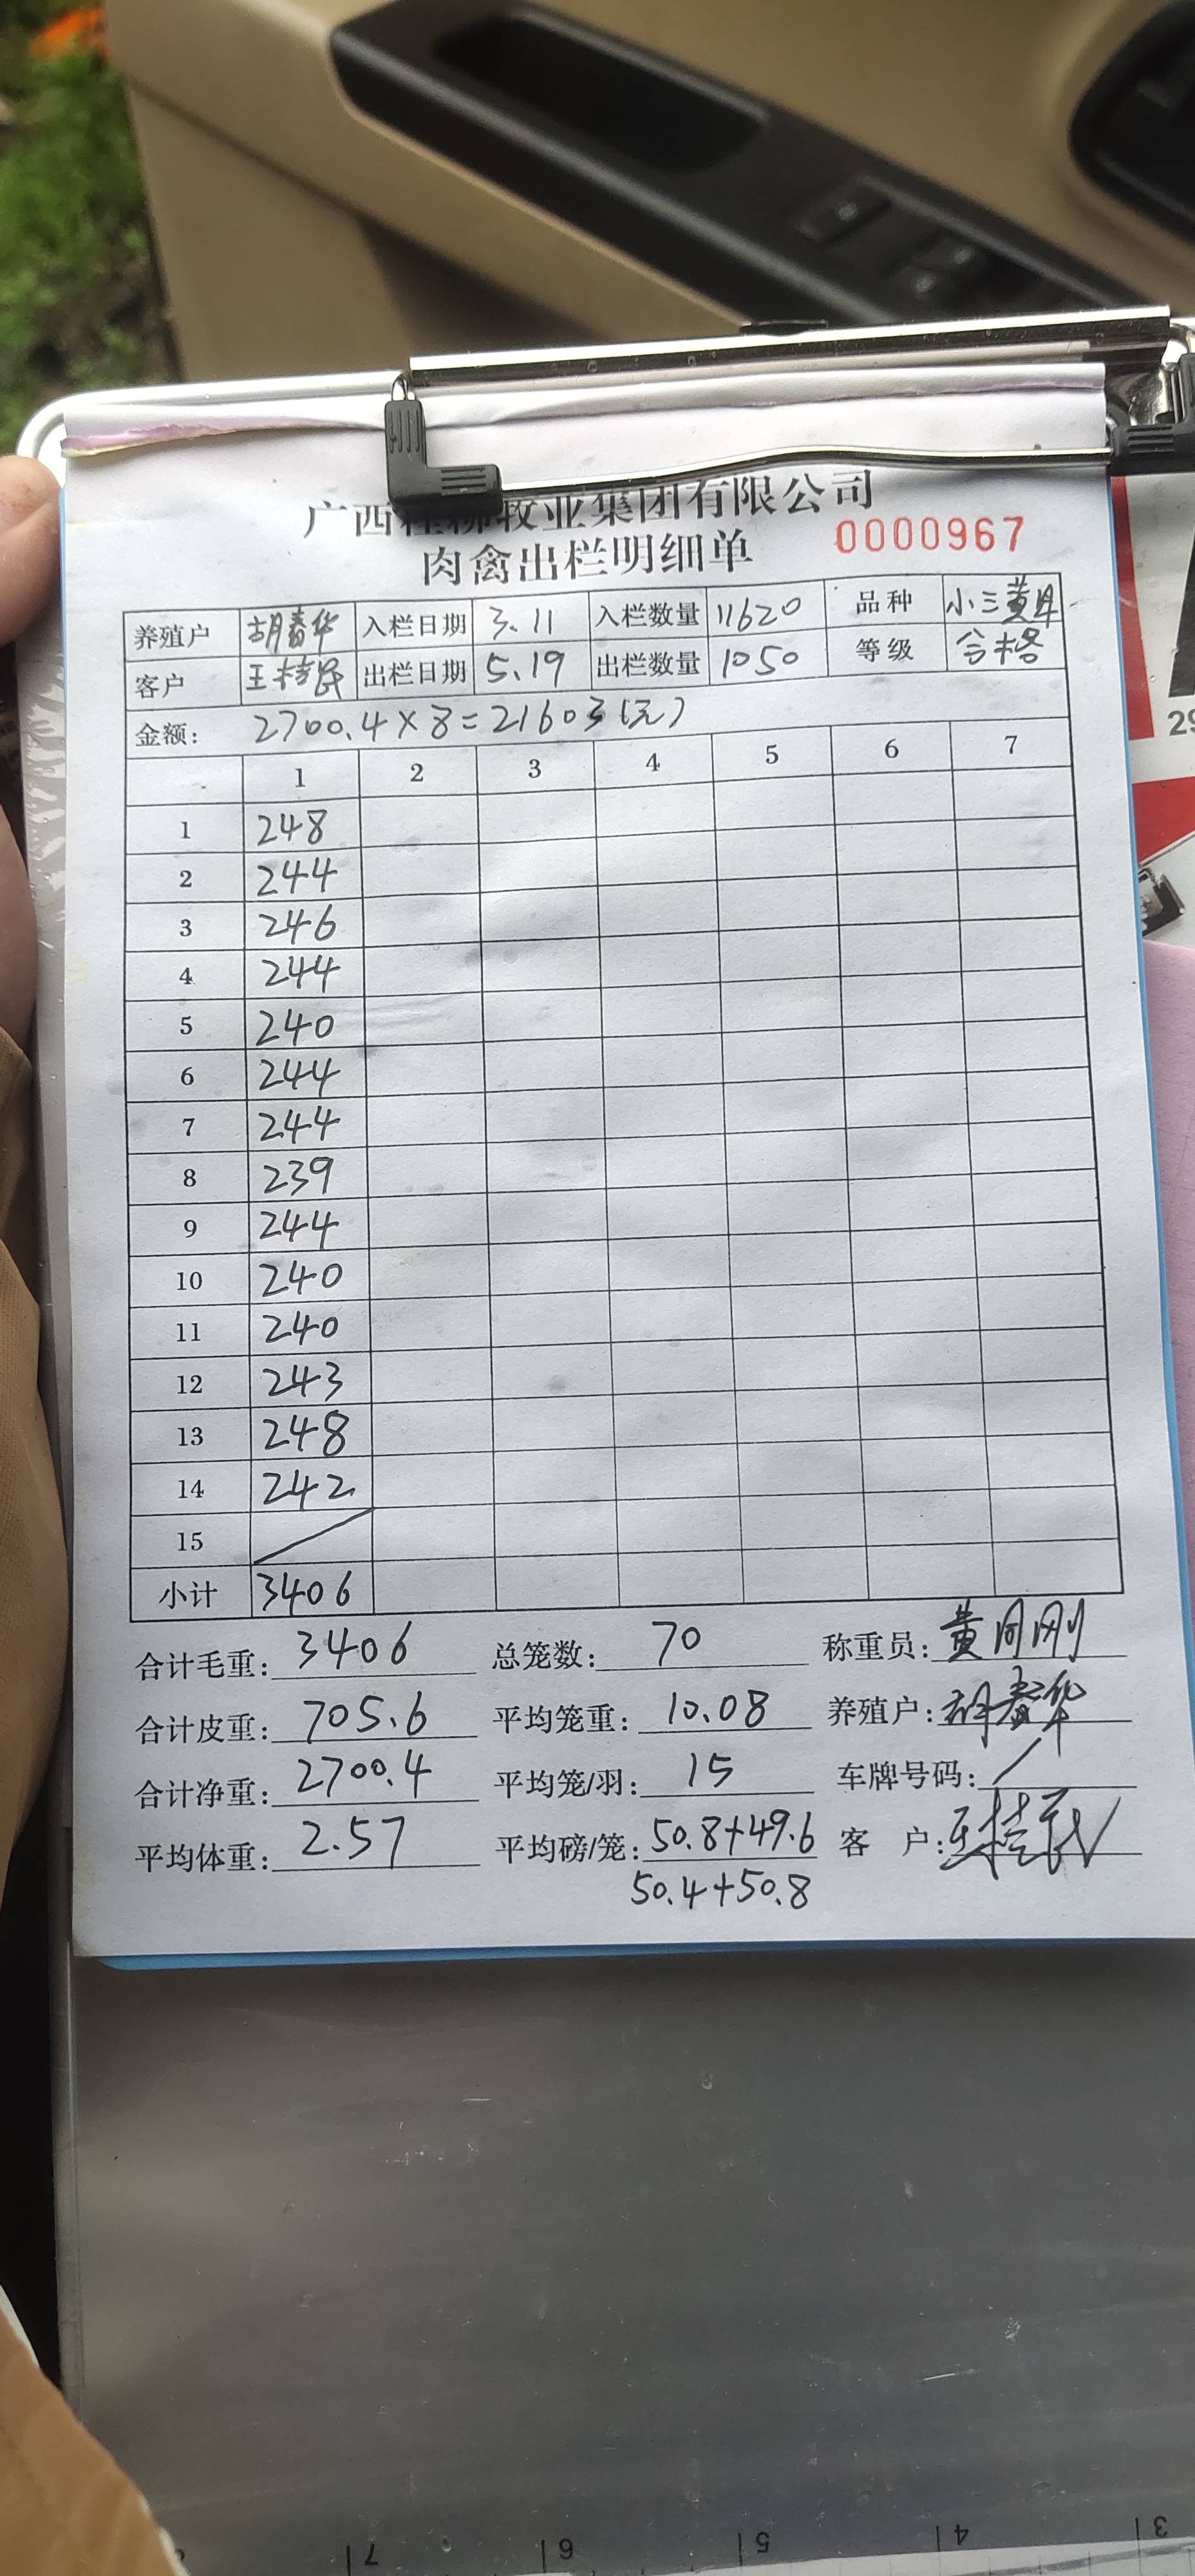 广西桂柳牧业集团有限公司
肉禽出栏明细单 0000967
养殖户 胡春华 入栏日期 3.11 入栏数量 11620 品种 小三黄
客户 出栏日期 5.19 出栏数量 1050 等级 合格
金额: 2700.4×8=21603(元)
1 2 3 4 5 6 7
1 248
2 244
3 246
4 244
5 240
6 244
7 244
8 239
9 244
10 240
11 240
12 243
13 248
14 242
15
小计 3406
合计毛重: 3406 总笼数: 70 称重员:
合计皮重: 705.6 平均笼重: 10.08 养殖户: 胡春华
合计净重: 2700.4 平均笼/羽: 15 车牌号码: /
平均体重: 2.57 平均磅/笼: 50.8+49.6 客 户:
50.4+50.8
29
7 6 5 4 3